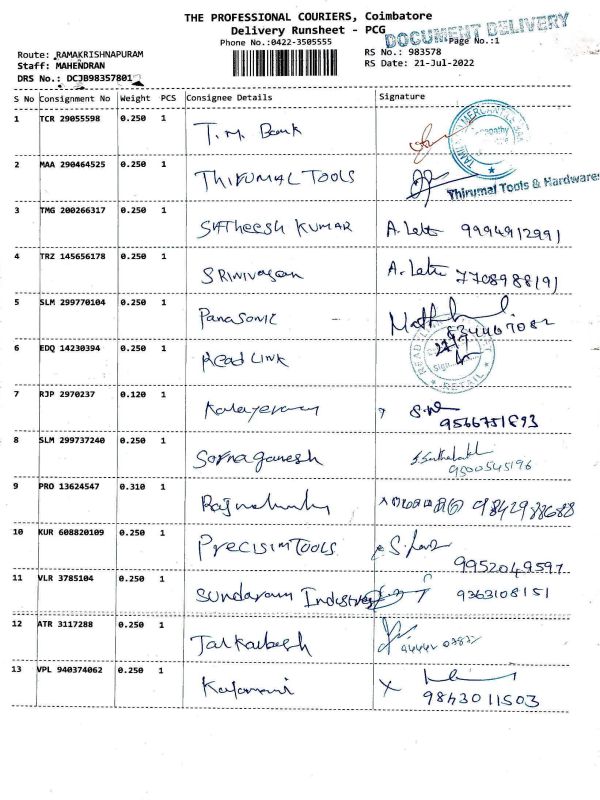 THE PROFESSIONAL COURIERS, Coimbatore
Delivery Runsheet - PCG
DOCUMENT DELIVERY
Phone No.:0422-3505555
Page No.:1
Route: RAMAKRISHNAPURAM
RS No.: 983578
Staff: MAHENDRAN
RS Date: 21-Jul-2022
DRS No.: DCJB98357801
S No Consignment No Weight PCS Consignee Details Signature
1 TCR 29055598 0.250 1 T.M. Bank
2 MAA 290464525 0.250 1 THIRUMAL TOOLS
Thirumal Tools & Hardwares
3 TMG 200266317 0.250 1 SATHEESH KUMAR 9994912991
4 TRZ 145656178 0.250 1 SRINIVASAN 7708988191
5 SLM 299770104 0.250 1 PANASONIC
6 EDQ 14230394 0.250 1 HEAD LINK
RETAIL
7 RJP 2970237 0.120 1
9566751893
8 SLM 299737240 0.250 1 Sornaganesh
9500545196
9 PRO 13624547 0.310 1 9842988688
10 KUR 608820109 0.250 1 PRECISIM TOOLS
9952049597
11 VLR 3785104 0.250 1 SUNDARAM Industries 9363108151
12 ATR 3117288 0.250 1
13 VPL 940374062 0.250 1 Kalamani X
9843011503